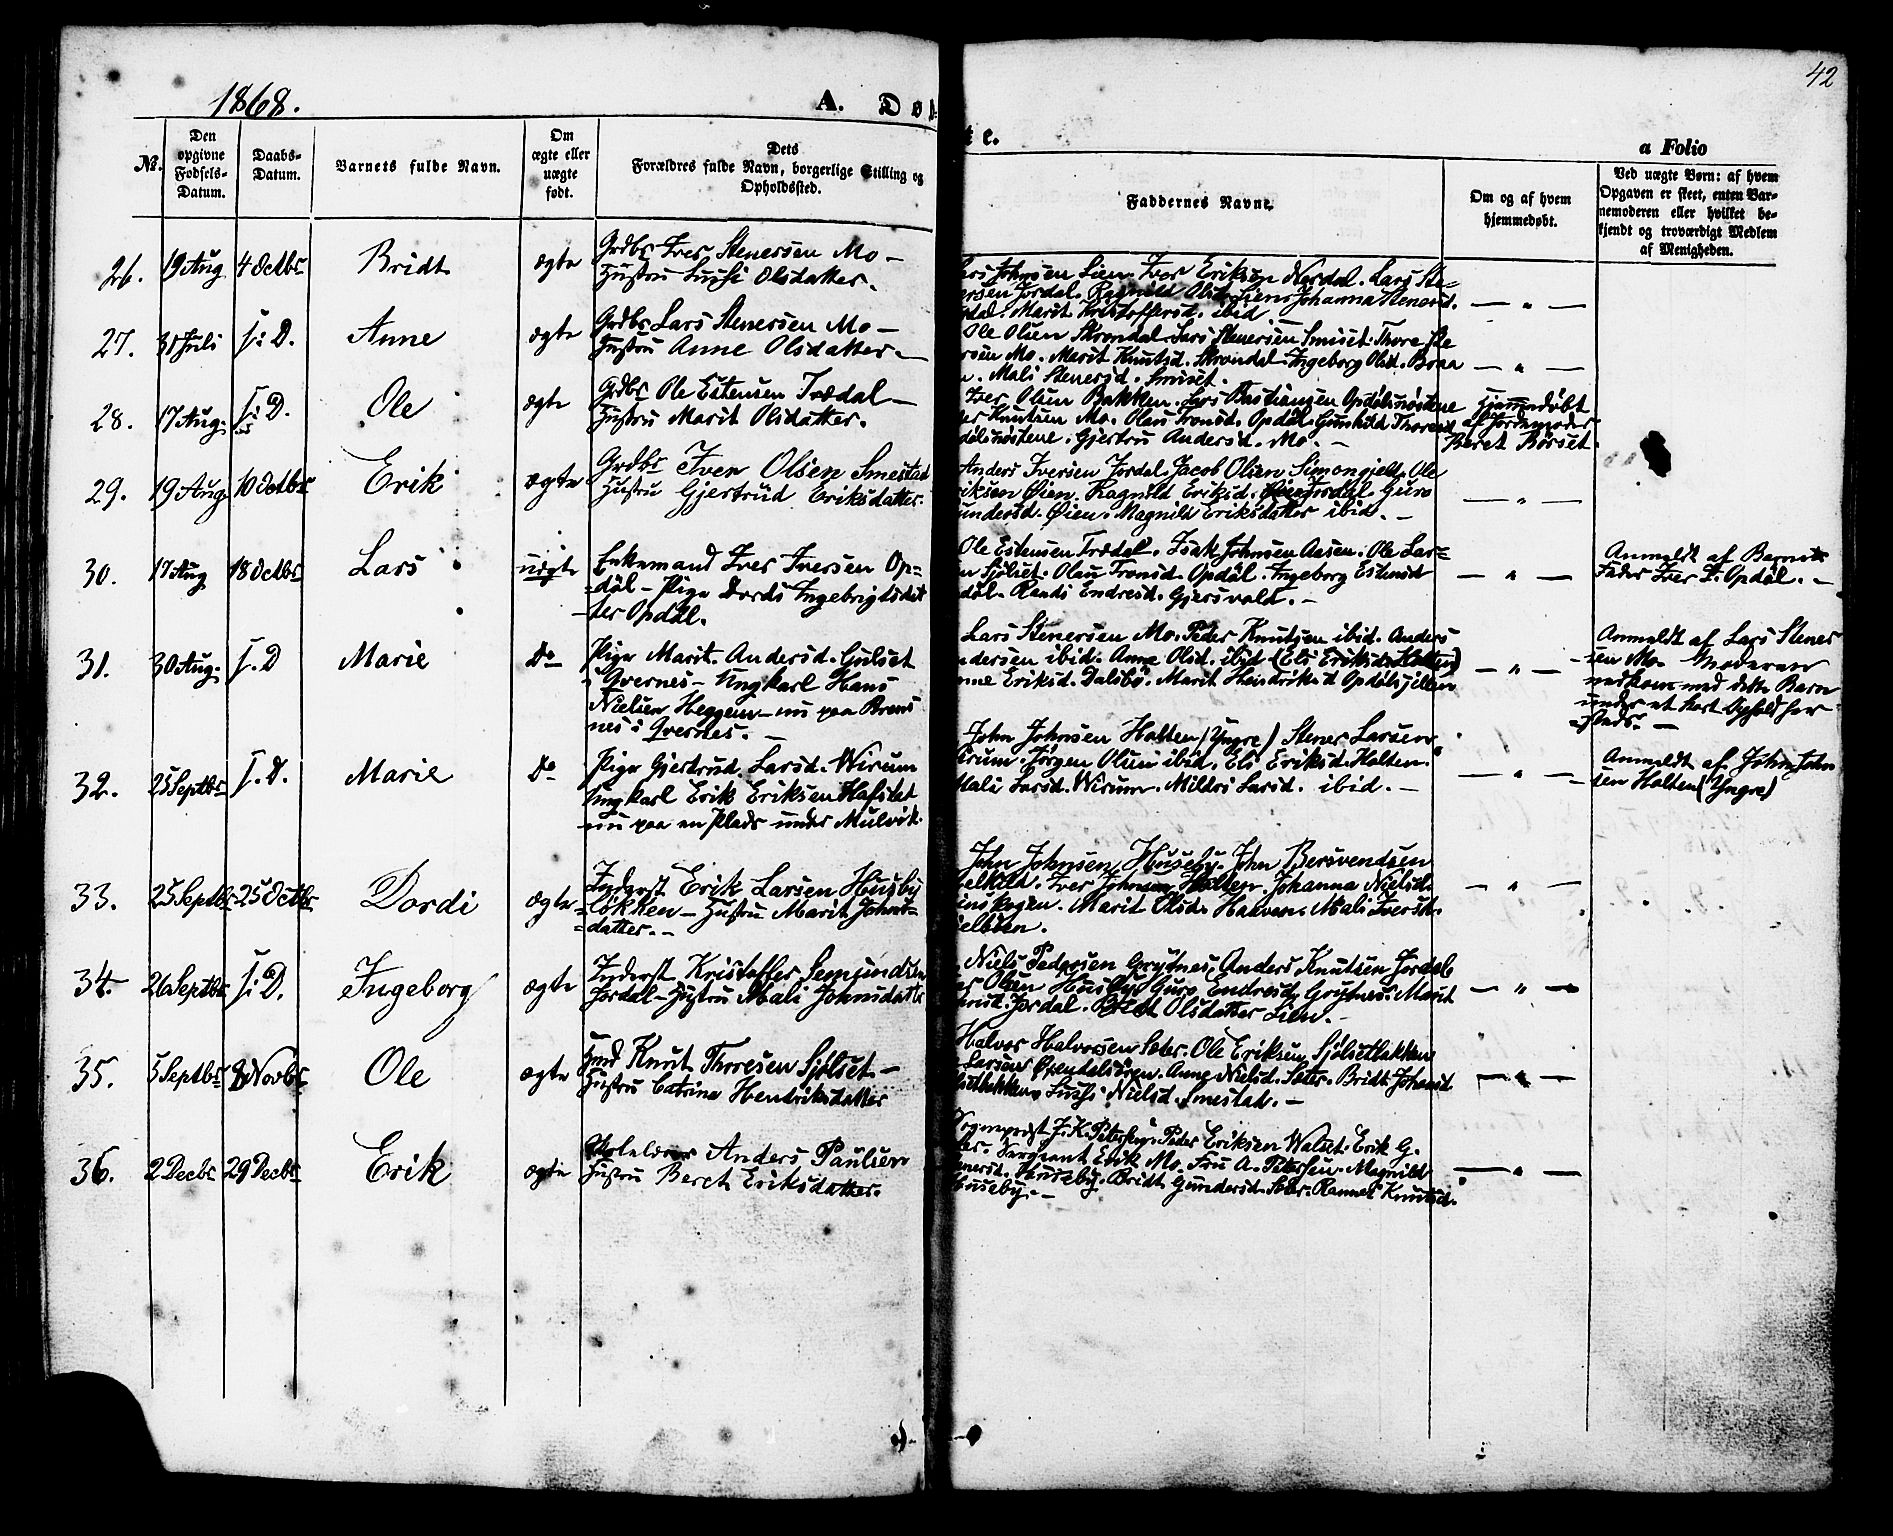 1868.
A. Dø
te.
a Folio
42
No.
Den opgivne Fødsels-Datum.
Daabs-Datum.
Barnets fulde Navn.
Om ægte eller uægte født.
Dets Forældres fulde Navn, borgerlige Stilling og Opholdssted.
Faddernes Navne.
Om og af hvem hjemmedøbt.
Ved uægte Børn: af hvem Opgaven er skeet, enten Barnemoderen eller hvilket bekjendt og troværdigt Medlem af Menigheden.
26. 19 Aug 4 Octbr Bridt ægte
Grdbr Iver Stenersen Mo –
Hustru Sussi Olsdatter.
Johnsen Lien. Iver Eriksen Nordal. Lars Ste-
ersen Jordal. Ragnild Olsd. Lien. Johanna Stenersd.
Marit Kristoffersd. ibid
— „ —
27. 31 Juli s: D. Anne ægte
Grdbr Lars Stenersen Mo –
Hustru Anne Olsdatter. –
Ole Olsen Skrondal. Lars Stenersen Smiset. Thore Ste
ersen Mo. Marit Knutsd. Skrondal. Ingeborg Olsd. Braa
n. Mali Stenersd. Smiset.
— „ —
28. 17 Aug. s: D. Ole ægte
Grdbr Ole Estensen Trædal –
Hustru Marit Olsdatter.
Iver Olsen Bakken. Lars Bastiansen Opdølsnøstene
der Knutsen Mo. Olau Tronsd. Opdøl. Gunhild Thoresd
dølsnøstene. Gjertru Andersd. Mo. –
Hjemmedøbt
af Jordmoder
Beret Børset.
29. 19 Aug 10 Octbr Erik ægte
Grdbr Iver Olsen Smestad
Hustru Gjertrud Eriksdatter.
Anders Iversen Jordal. Jacob Olsen Simongjelt. Ole
riksen Øien. Ragnild Eriksd. Jordal. Guro
undersd. Øien. Magnild Eriksdatter ibid. –
— „ —
30. 17 Aug 18 Octbr Lars uægte
Enkemand Iver Iversen Op=
=døl – Pige Dordi Ingebrigtsdat
ter Opdøl.
Ole Estensen Trædal. Isak Johnsen Aasen. Ole Lar=
n Sjølset. Olau Tronsd. Opdøl. Ingeborg Estensd
døl. Randi Endresd. Gjersvold. –
— „ —
Anmeldt af Barnets
Fader Iver I. Opdøl. –
31. 30 Aug. s. D Marie Do
Pige Marit Andersd. Gulset
i Qvernes – Ungkarl Hans
Nielsen Heggem – nu paa Brem
nes i Qvernes. –
Lars Stenersen Mo. Peder Knutsen ibid. Anders
ndersen ibid. Anne Olsd. ibid (Eli Eriksd. Holten)
nne Eriksd. Dalsbø. Marit Heindriksd Opdølsjellen
— „ —
Anmeldt af Lars Stener
sen Mo. Moderen
nedkom med dette Barn
under et kort Ophold her
steds. –
32. 25 Septbr s. D. Marie Do
Pige Gjertrud Larsd. Wirum
Ungkarl Erik Eriksen Hafslet
nu paa en Plads under Mulvik.
John Johnsen Holten (Yngre) Stener Larsen
irum. Jørgen Olsen ibid. Eli Eriksd. Holten.
Mali Larsd. Wirum. Mildri Larsd. ibid. –
— „ —
Anmeldt af John John
sen Holten (Yngre)
33. 25 Septbr 25 Octbr Dordi ægte
Inderst Erik Larsen Husby
løkken – Hustru Marit Johns=
=datter. –
John Johnsen Huseby. John Bersvendsen
Iver Johnsen Holten. Johanna Nielsd.
Marit Olsd. Halven. Mali Iversd.
— „ —
34. 26 Septbr s: D. Ingeborg ægte
Inderst Kristoffer Semundsen
Jordal – Hustru Mali Johnsdatter
Niels Pedersen Grytnes, Anders Knutsen Jordal
Olsen Huseby. Guro Endresd. Grytnes. Marit
Jordal. Bridt Olsdatter Lien. –
— „ —
35. 5 Septbr 8 Novbr Ole ægte
Hmd Knut Thoresen Sjølset –
Hustru Catrine Hendriksdatter
Halvor Halvorsen Sæter. Ole Eriksen Sjølsetløkken
Larsen Ørendelsøren. Anne Nielsd. Sæter. Bridt Johansd
løkken. Sussi Nielsd. Smestad. –
— „ —
36. 2 Decbr 29 Decbr Erik ægte
Skolelærer Anders Paulsen
Hustru Beret Eriksdatter.
Sognprest J. K. Petersen. Peder Eriksen Walset. Erik G.
ter. Sergeant Erik Mo. Fru A. Petersen. Magnild
Huseby. Bridt Gundersd. Sæter. Rannei Knutsd.
Huseby. –
— „ —